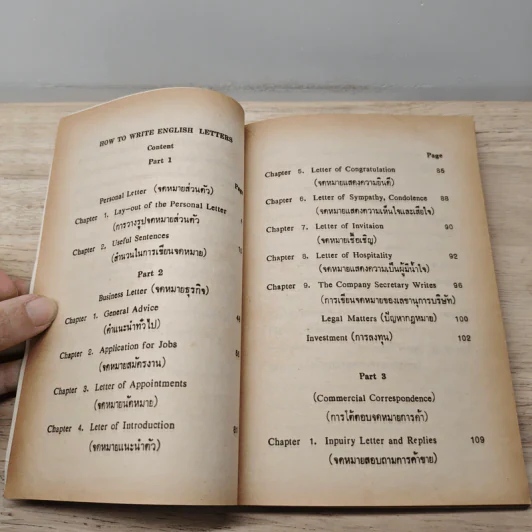 HOW TO WRITE ENGLISH LETTERS
Content
Part 1
Personal Letter (จดหมายส่วนตัว)
Chapter 1. Lay-out of the Personal Letter
(การวางรูปจดหมายส่วนตัว
Chapter 2. Useful Sentences
(สำนวนในการเขียนจดหมาย)
Part 2
Business Letter (จดหมายธุรกิจ)
Chapter 1. General Advice
(คำแนะนำทั่วไป)
Chapter 2. Application for Jobs
(จดหมายสมัครงาน)
Chapter 3. Letter of Appointments
(จดหมายนัดหมาย)
Chapter 4. Leter of Introduction
(จดหมายแนะนำตัว)
Page
Chapter 5. Letter of Congratulation
(จดหมายแสดงความยินดี)
Chapter 6. Letter of Sympathy, Condolence 88
(จดหมายแสดงความเห็นใจและเสียใจ)
Chapter 7. Letter of Invitaion 90
(จดหมายเชื้อเชิญ)
Chapter 8. Letter of Hospitality 92
(จดหมายแสดงความเป็นผู้มีน้ำใจ)
Chapter 9. The Company Secretary Writes 96
(การเขียนจดหมายของเลขานุการบริษัท)
Legal Matters (ปัญหากฎหมาย) 100
Investment (การลงทุน) 102
Part 3
(Commercial Correspondence)
(การโต้ตอบจดหมายการค้า)
Chapter 1. Inpuiry Letter and Replies 109
(จดหมายสอบถามการค้าขาย)